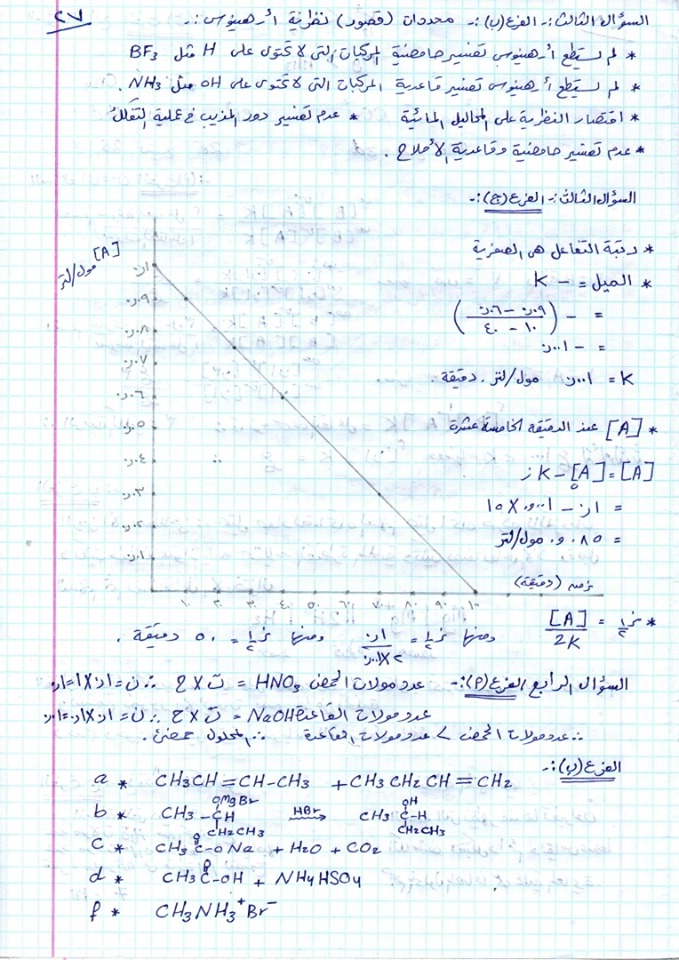 ٢٧
السؤال الثالث:- الفرع (ب):- محددات (قصور) نظرية أرهينوس:-
* لم يستطع أرهينوس تفسير حامضية المركبات التي لا تحتوي على H مثل BF3
* لم يستطع أرهينوس تفسير قاعدية المركبات التي لا تحتوي على OH مثل NH3 .
* اقتصار النظرية على المحاليل المائية * عدم تفسير دور المذيب في عملية التفكك
* عدم تفسير حامضية وقاعدية الأملاح .
السؤال الثالث:- الفرع (ج):-
* رتبة التفاعل هي الصفرية
* الميل = - K
= - (٠,٩ - ٠,٦ / ١٠ - ٤٠)
= - ٠,٠١
K = ٠,٠١ مول/لتر . دقيقة .
* [A] عند الدقيقة الخامسة عشرة
[A] = [A]₀ - K ز
= ٠,١ - ٠,٠٠١ × ١٥
= ٠,٠٨٥ مول/لتر
[A] مول/لتر
٠,١
٠,٠٩
٠,٠٨
٠,٠٧
٠,٠٦
٠,٠٥
٠,٠٤
٠,٠٣
٠,٠٢
٠,٠١
١٠ ٢٠ ٣٠ ٤٠ ٥٠ ٦٠ ٧٠ ٨٠ ٩٠ ١٠٠
زمن (دقيقة)
* ز½ = [A] / 2K ومنها ز½ = ٠,١ / ٢×٠,٠٠١ ومنها ز½ = ٥٠ دقيقة .
السؤال الرابع الفرع (م):- عدد مولات الحمض HNO3 = ت × ح ∴ ن = ٠,١ × ١ = ٠,١
عدد مولات القاعدة NaOH = ت × ح ∴ ن = ٠,١ × ٠,١ = ٠,٠١
∴ عدد مولات الحمض > عدد مولات القاعدة ∴ المحلول حمضي .
الفرع (ب):-
a * CH3CH=CH-CH3 + CH3CH2CH=CH2
b * CH3-CH(OMgBr)-CH2CH3 HBr → CH3C(OH)-H CH2CH3
c * CH3C(O)-ONa + H2O + CO2
d * CH3C(O)-OH + NH4HSO4
f * CH3NH3⁺Br⁻